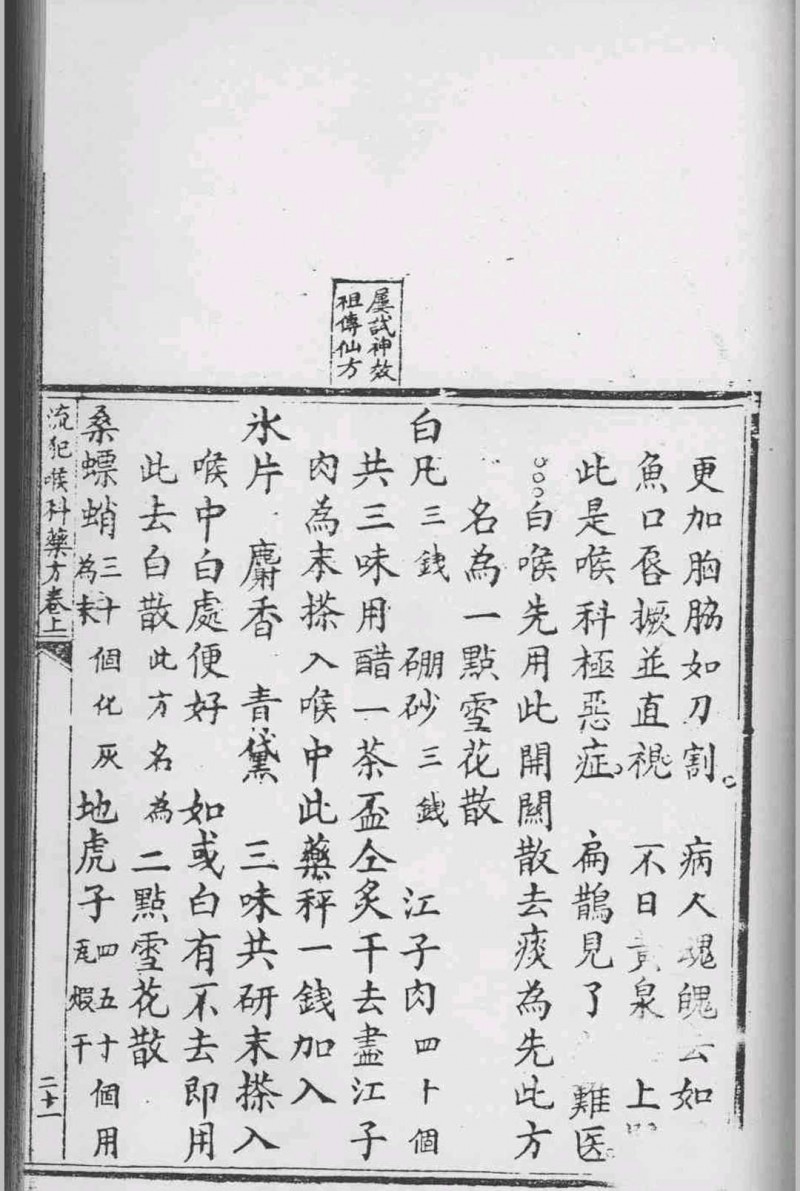 屢試神效
祖傳仙方
更加胸脇如刀割 病人魂魄去如
魚口唇撅並直視 不日黃泉 上
此是喉科極惡症 扁鵲見了 難医
白喉先用此開關散去痰為先此方
名為一點雪花散
白凡三銭 硼砂三銭 江子肉四十個
共三味用醋一茶盃仝炙干去盡江子
肉為末搽入喉中此藥秤一銭加入
氷片 麝香 青黛 三味共研末搽入
喉中白處便好 如或白有不去即用
此去白散此方名為二點雪花散
桑螵蛸三十個化灰為末 地虎子四五十個用瓦煅干
流犯喉科藥方卷上 二十一